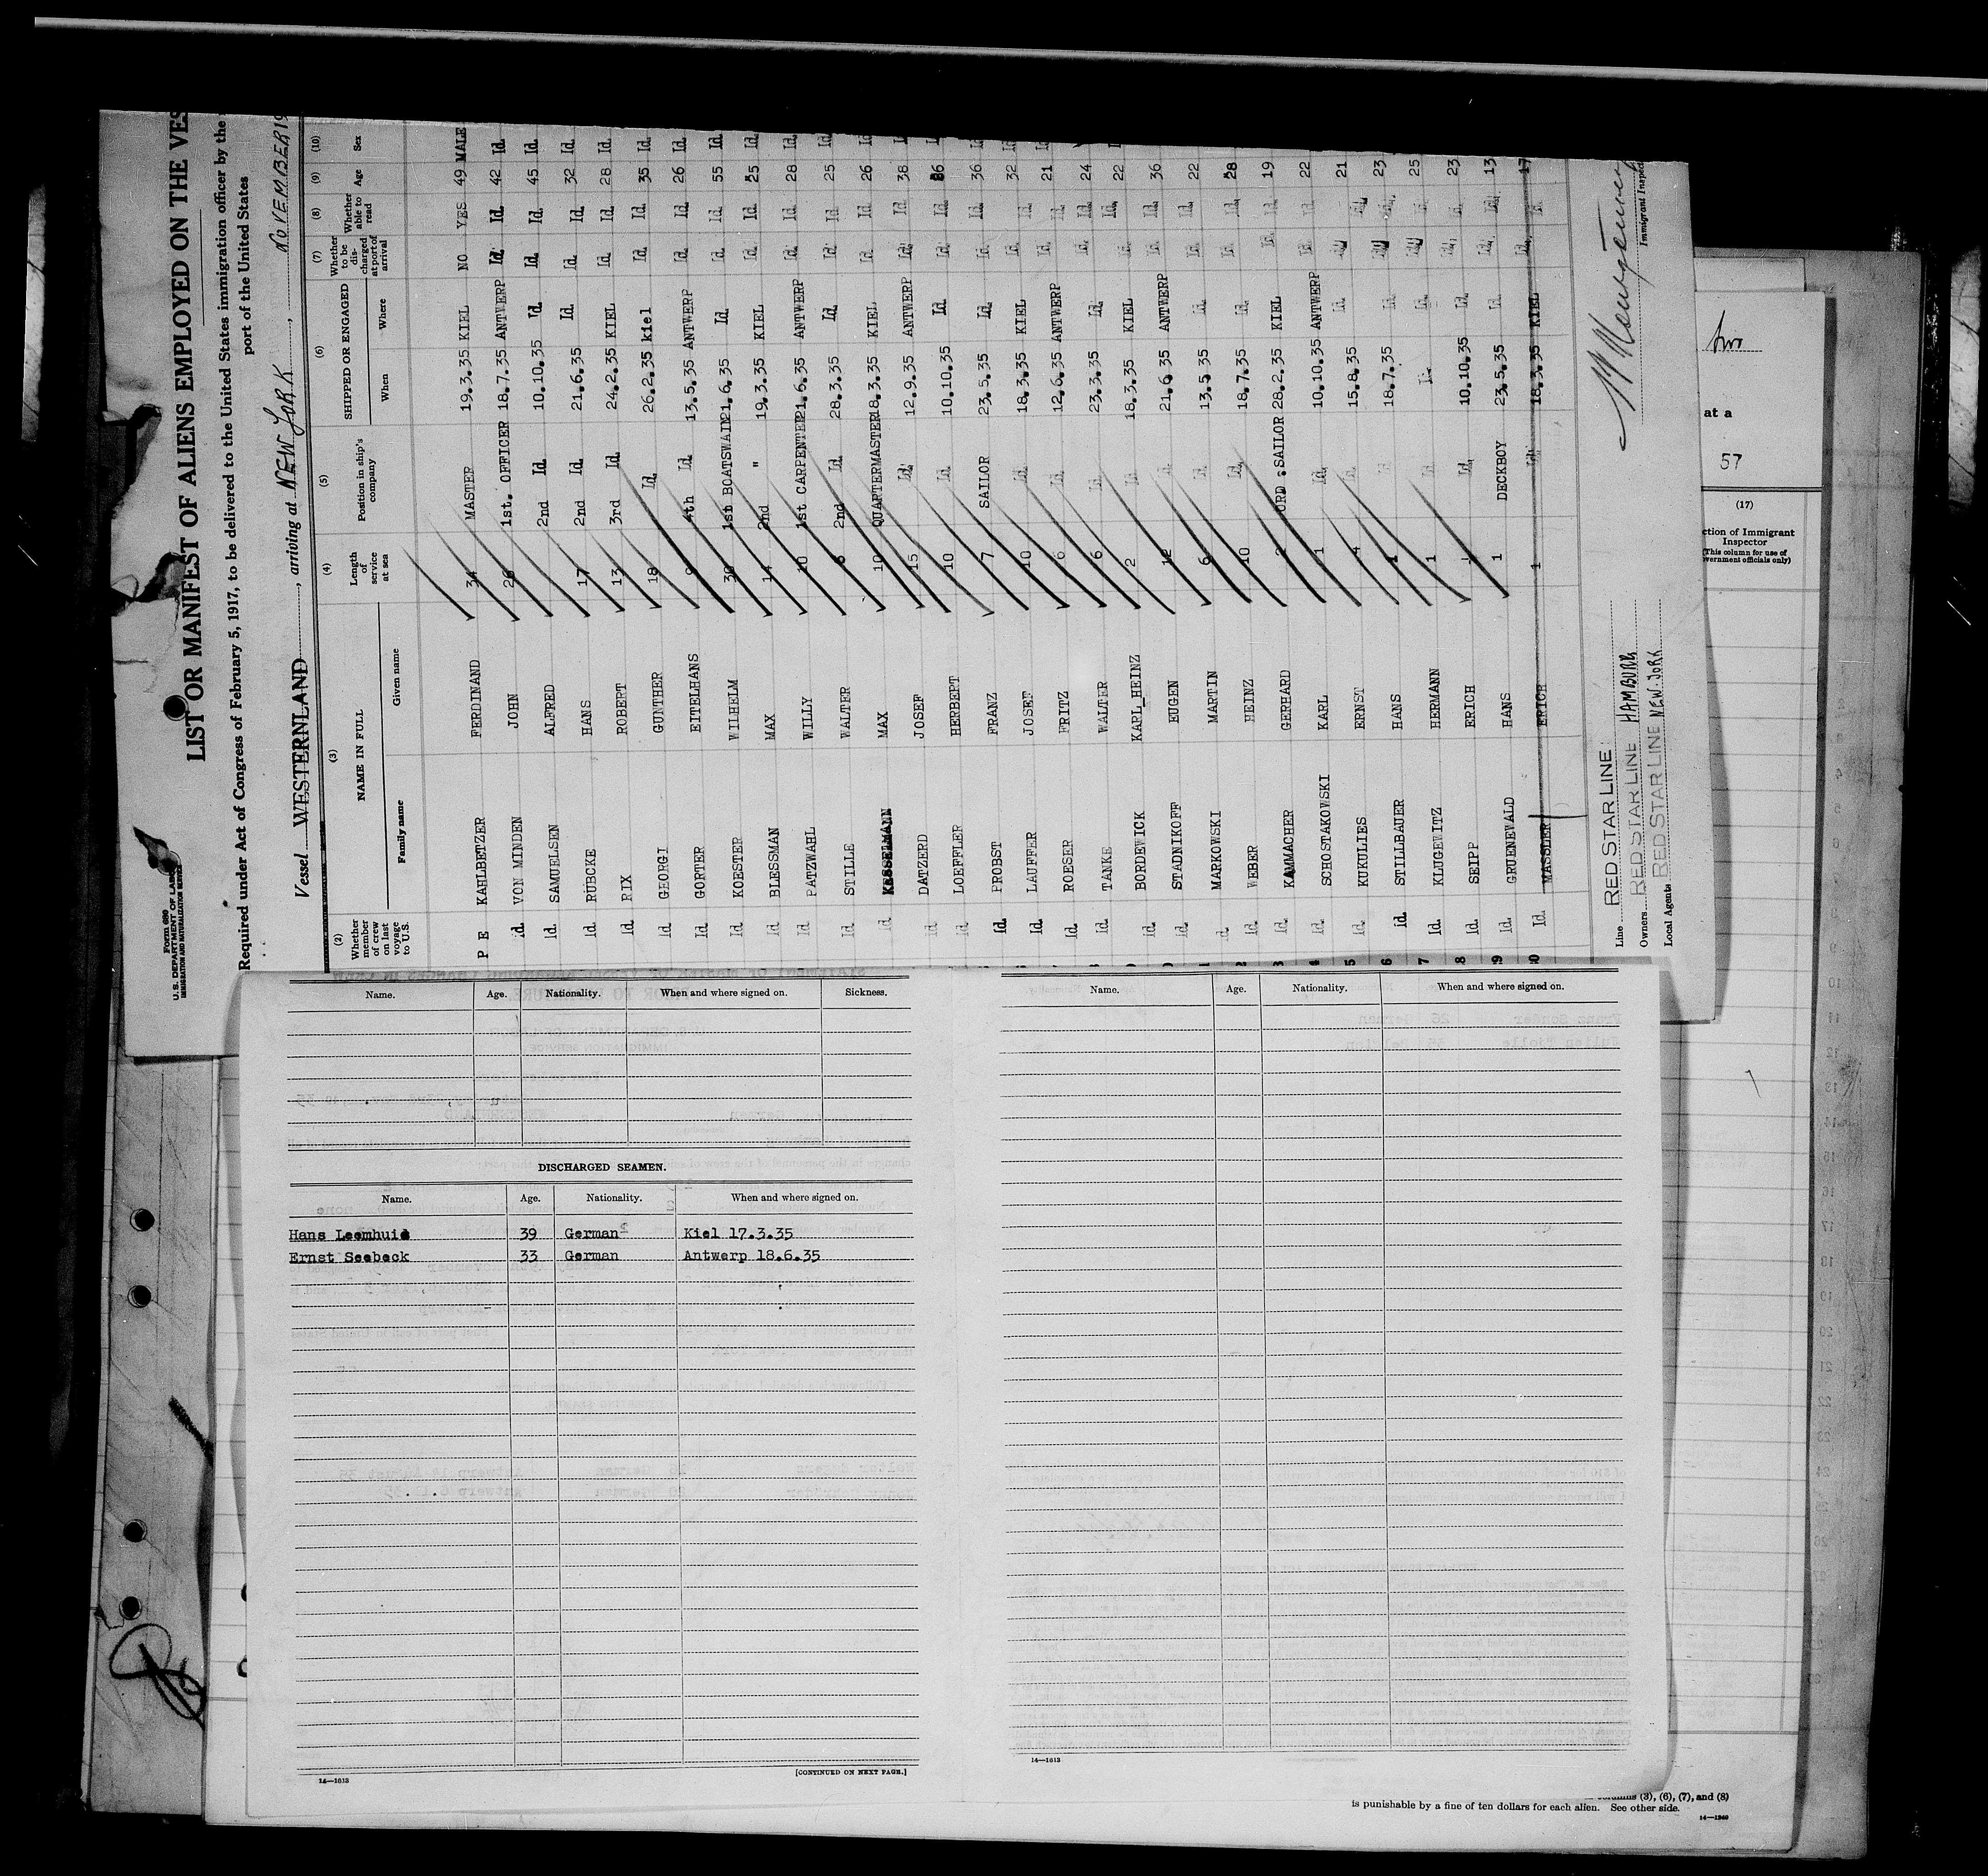 Form 689
U. S. DEPARTMENT OF LABOR
IMMIGRATION AND NATURALIZATION SERVICE
LIST OR MANIFEST OF ALIENS EMPLOYED ON THE VES
Required under Act of Congress of February 5, 1917, to be delivered to the United States immigration officer by the
port of the United States
Vessel WESTERNLAND, arriving at NEW YORK, NOVEMBER 19
(2) (3) (4) (5) (6) (7) (8) (9) (10)
Whether member of crew on last voyage to U.S. NAME IN FULL Length of service at sea Position in ship's company SHIPPED OR ENGAGED Whether to be discharged at port of arrival Whether able to read Age Sex
Family name Given name When Where
P E KAHLBETZER FERDINAND 34 MASTER 19.3.35 KIEL NO YES 49 MALE
Id. VON MINDEN JOHN 26 1st. OFFICER 18.7.35 ANTWERP Id. Id. 42 Id.
Id. SAMUELSEN ALFRED 2nd Id. 10.10.35 Id. Id. Id. 45 Id.
Id. RÜBCKE HANS 17 2nd Id. 21.6.35 Id. Id. Id. 32 Id.
Id. RIX ROBERT 13 3rd Id. 24.2.35 KIEL Id. Id. 28 Id.
Id. GEORGI GUNTHER 18 Id. 26.2.35 kiel Id. Id. 35 Id.
Id. GORTER EITELHANS 9 4th Id. 13.5.35 ANTWERP Id. Id. 26 Id.
Id. KOESTER WILHELM 30 1st BOATSWAIN 21.6.35 Id. Id. Id. 55 Id.
Id. BLESSMAN MAX 14 2nd " 19.3.35 KIEL Id. Id. 25 Id.
Id. PATZWAHL WILLY 10 1st CARPENTER 21.6.35 ANTWERP Id. Id. 28 Id.
Id. STILLE WALTER 6 2nd Id. 28.3.35 Id. Id. Id. 25 Id.
Id. KESSELMANN MAX 10 QUARTERMASTER 18.3.35 KIEL Id. Id. 26 Id.
Id. DATZERD JOSEF 15 Id. 12.9.35 ANTWERP Id. Id. 38
Id. LOEFFLER HERBERT 10 Id. 10.10.35 Id. Id. Id. 36
Id. PROBST FRANZ 7 SAILOR 23.5.35 Id. Id. Id. 36
Id. LAUFFER JOSEF 10 Id. 18.3.35 KIEL Id. Id. 32
Id. ROESER FRITZ 6 Id. 12.6.35 ANTWERP Id. Id. 21
Id. TANKE WALTER 6 Id. 23.3.35 Id. Id. Id. 24
Id. BORDEWICK KARL_HEINZ 2 Id. 18.3.35 KIEL Id. Id. 22
Id. STADNIKOFF EUGEN 12 Id. 21.6.35 ANTWERP Id. Id. 36
Id. MARKOWSKI MARTIN 6 Id. 13.5.35 Id. Id. Id. 22
Id. WEBER HEINZ 10 Id. 18.7.35 Id. Id. Id. 28
Id. KAMMACHER GERHARD 2 ORD.SAILOR 28.2.35 KIEL Id. Id. 19
Id. SCHOSTAKOWSKI KARL 1 Id. 10.10.35 ANTWERP Id. Id. 22
Id. KUKULIES ERNST 4 Id. 15.8.35 Id. Id. Id. 21
Id. STILLBAUER HANS 1 Id. 18.7.35 Id. Id. Id. 23
Id. KLUGEWITZ HERMANN 1 Id. Id. Id. Id. Id. 25
Id. SEIPP ERICH Id. 10.10.35 Id. Id. Id. 23
Id. GRUENEWALD HANS 1 DECKBOY 23.5.35 Id. Id. Id. 13
Id. MASSLER ERICH 1 Id. 18.3.35 KIEL Id. Id. 17
Line RED STAR LINE
Owners RED STAR LINE HAMBURG
Local Agents RED STAR LINE NEW YORK
Immigrant Inspec
two
at a
57
(17)
ction of Immigrant
Inspector
(This column for use of
vernment officials only)
Name. Age. Nationality. When and where signed on. Sickness.
DISCHARGED SEAMEN.
Name. Age. Nationality. When and where signed on.
Hans Leemhuid 39 German Kiel 17.3.35
Ernst Seebeck 33 German Antwerp 18.6.35
14—1613
[CONTINUED ON NEXT PAGE.]
Name. Age. Nationality. When and where signed on.
14—1613
columns (3), (6), (7), and (8)
is punishable by a fine of ten dollars for each alien. See other side.
14—1240